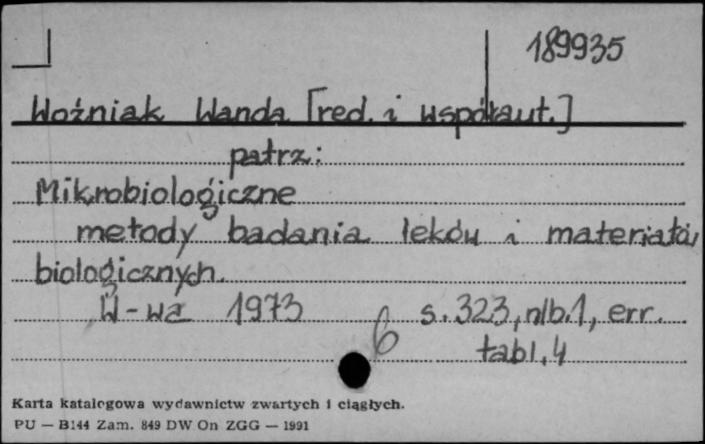 189935
Woźniak Wanda [red. i współaut.]
patrz:
Mikrobiologiczne
metody badania leków i materiałów
biologicznych.
W-wa 1973 s. 323, nlb.1, err.
6 tabl. 4
Karta katalogowa wydawnictw zwartych i ciągłych.
PU — B144 Zam. 849 DW On ZGG — 1991